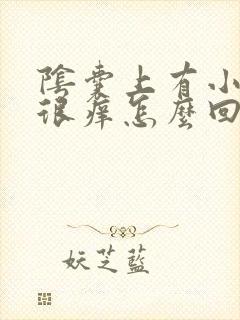 陰囊上有小
很癢怎麼回
妖芝藍